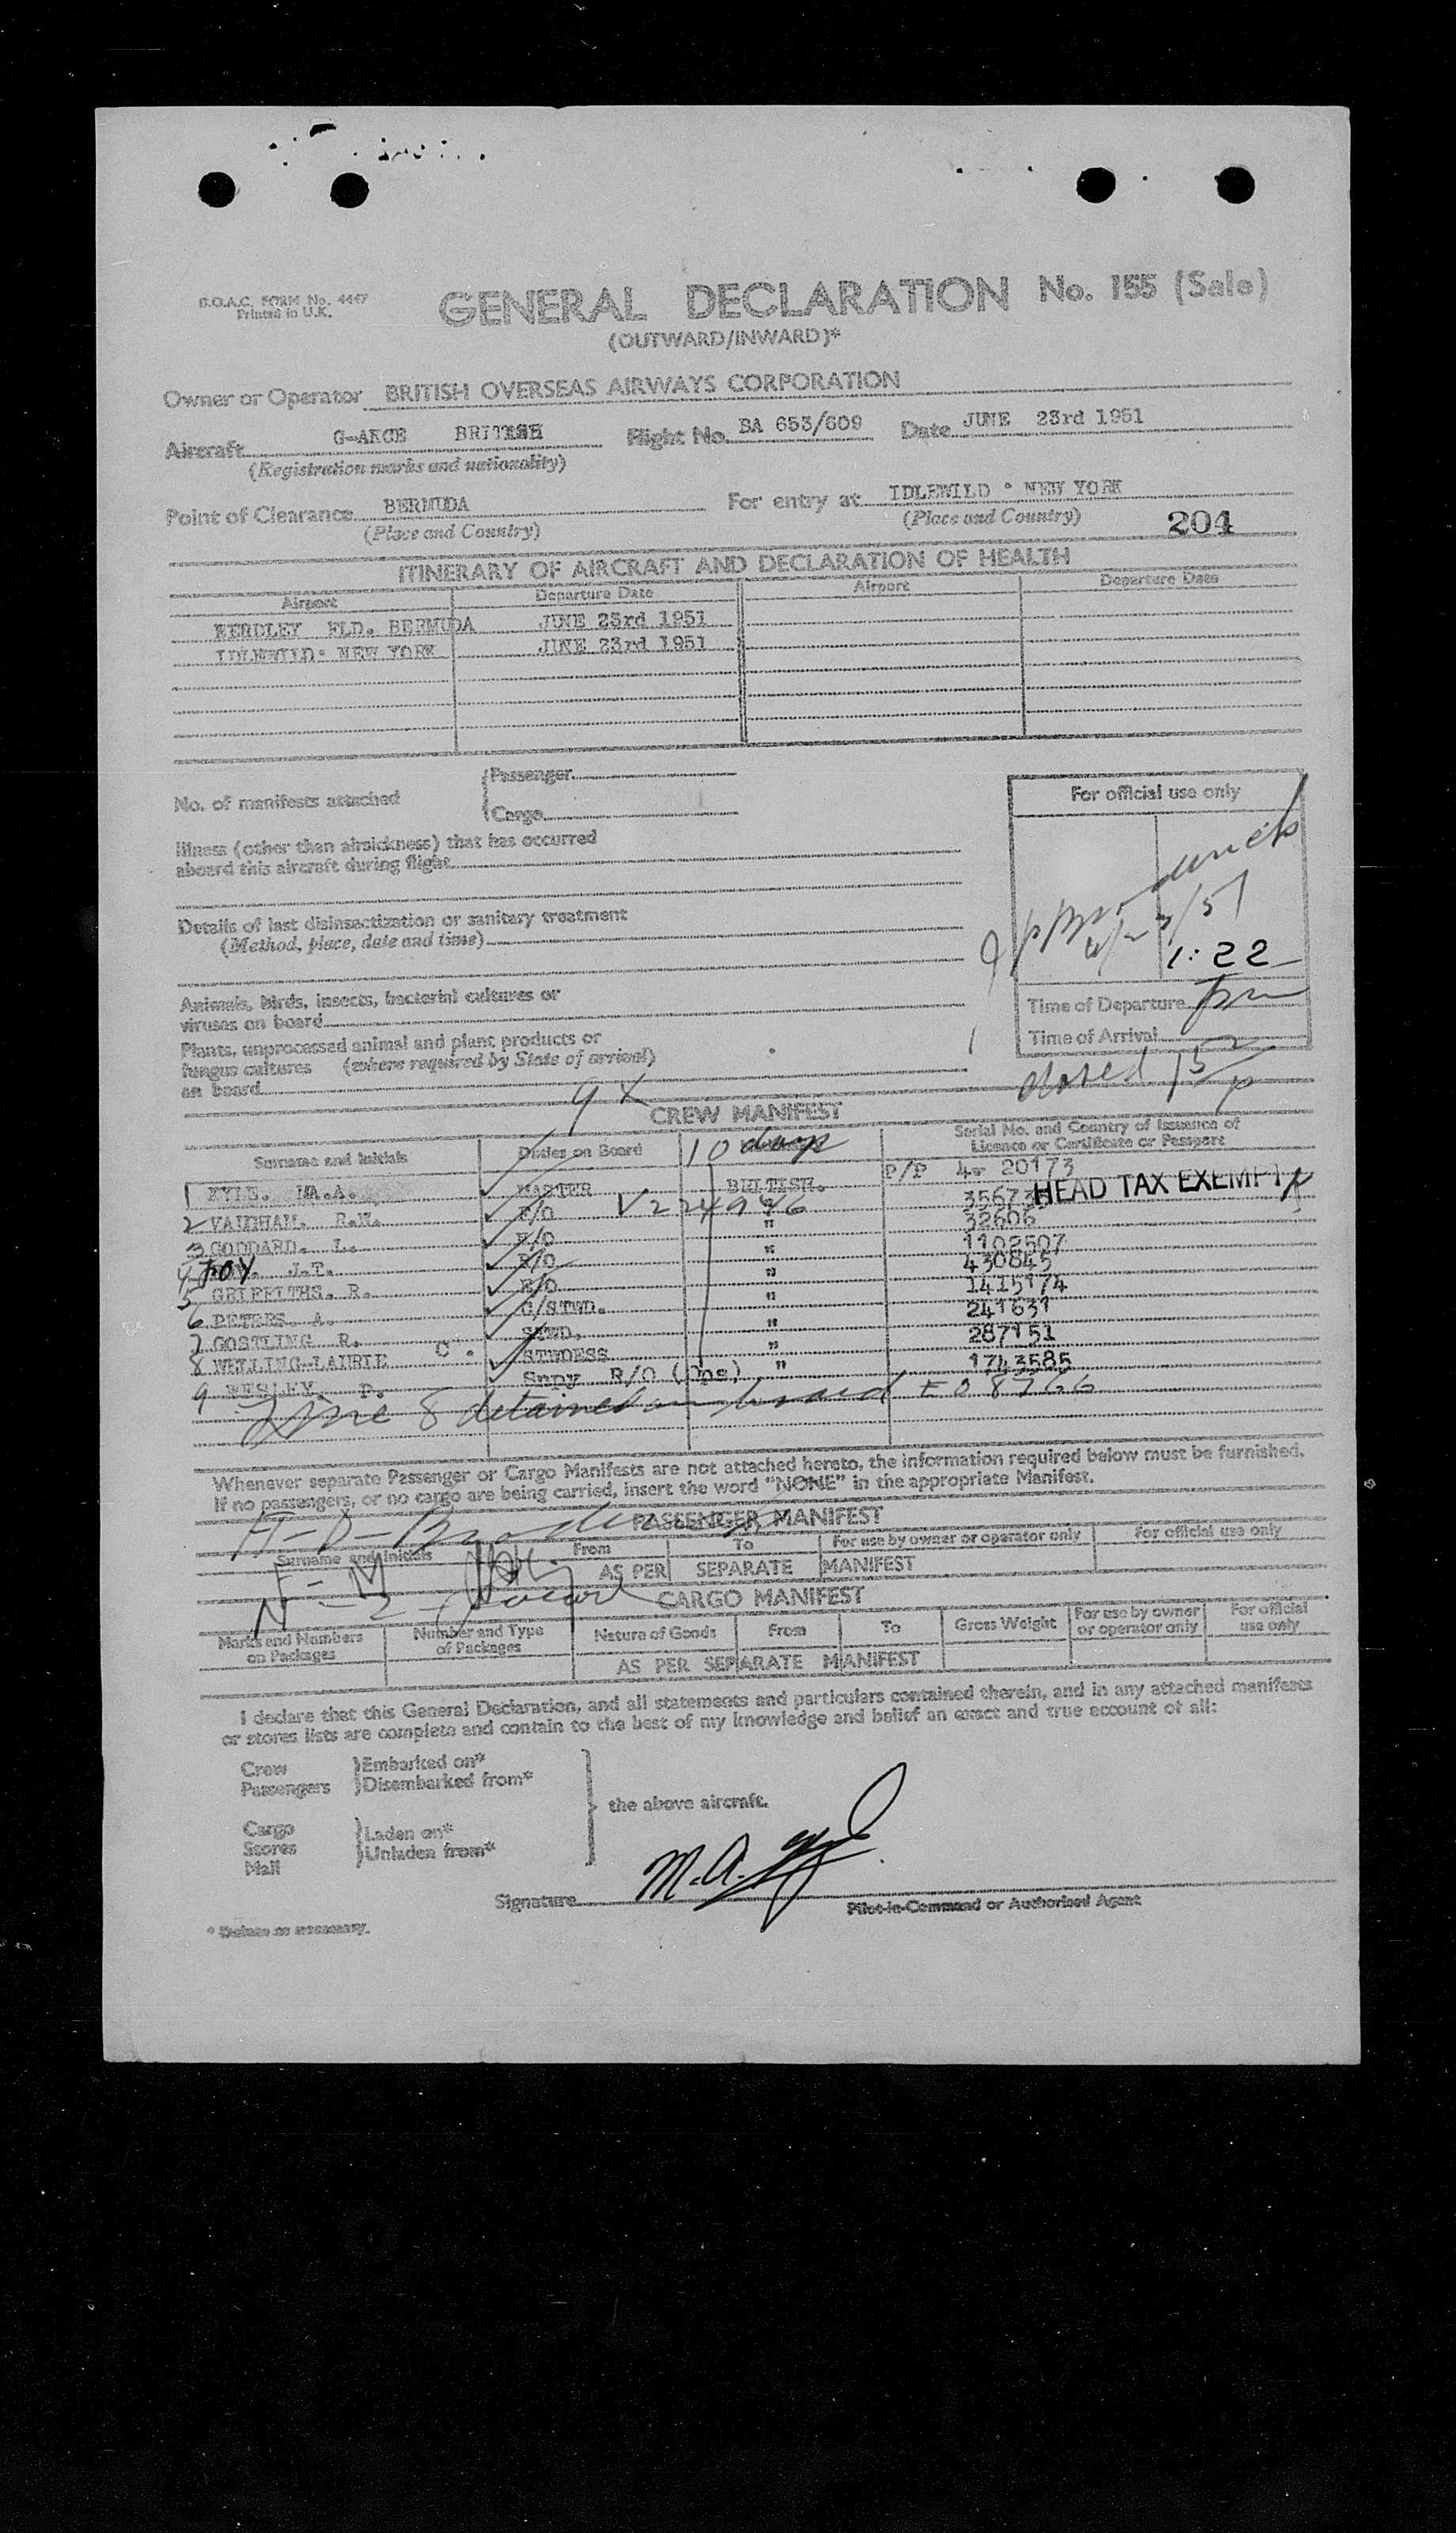 B.O.A.C. FORM No. 4447
Printed in U.K.
GENERAL DECLARATION No. 155 (Sale)
(OUTWARD/INWARD)*
Owner or Operator BRITISH OVERSEAS AIRWAYS CORPORATION
Aircraft G-AKCE BRITISH Flight No. BA 653/609 Date JUNE 23rd 1951
(Registration marks and nationality)
Point of Clearance BERMUDA For entry at IDLEWILD NEW YORK
(Place and Country) (Place and Country) 204
ITINERARY OF AIRCRAFT AND DECLARATION OF HEALTH
Airport Departure Date Airport Departure Date
FLD. BERMUDA JUNE 23rd 1951
IDLEWILD NEW YORK JUNE 23rd 1951
No. of manifests attached
Passenger
Cargo
For official use only
Illness (other than airsickness) that has occurred
aboard this aircraft during flight
Details of last disinsectization or sanitary treatment
(Method, place, date and time)
1:22
Animals, birds, insects, bacterial cultures or
viruses on board
Time of Departure
Plants, unprocessed animal and plant products or
fungus cultures (where required by State of arrival)
on board
Time of Arrival
closed
9 X
CREW MANIFEST
Surname and Initials Duties on Board 10 days Serial No. and Country of Issuance of
Licence or Certificate or Passport
1 M.A. MASTER BRITISH. P/P 20173
2 R.W. F/O V224996 HEAD TAX EXEMPT
3 GODDARD. L. " 32606
4 FOY J.T. R/O " 1102507
5 R. E/O " 430845
6 PETERS. A. C/STWD. " 1415174
7 GOSTLING R. STWD. " 241631
8 WELLING-LAURIE C. STWDESS " 287151
9 WESLEY. P. Supy R/O (Ops) " 1743585
Line 8 detained on board
Whenever separate Passenger or Cargo Manifests are not attached hereto, the information required below must be furnished.
If no passengers, or no cargo are being carried, insert the word "NONE" in the appropriate Manifest.
PASSENGER MANIFEST
Surname and Initials From To For use by owner or operator only For official use only
AS PER SEPARATE MANIFEST
CARGO MANIFEST
Marks and Numbers on Packages Number and Type of Packages Nature of Goods From To Gross Weight For use by owner or operator only For official use only
AS PER SEPARATE MANIFEST
I declare that this General Declaration, and all statements and particulars contained therein, and in any attached manifests
or stores lists are complete and contain to the best of my knowledge and belief an exact and true account of all:
Crew Embarked on*
Passengers Disembarked from*
the above aircraft.
Cargo Laden on*
Stores Unladen from*
Mail
Signature M.A.
Pilot-in-Command or Authorised Agent
* Delete as necessary.